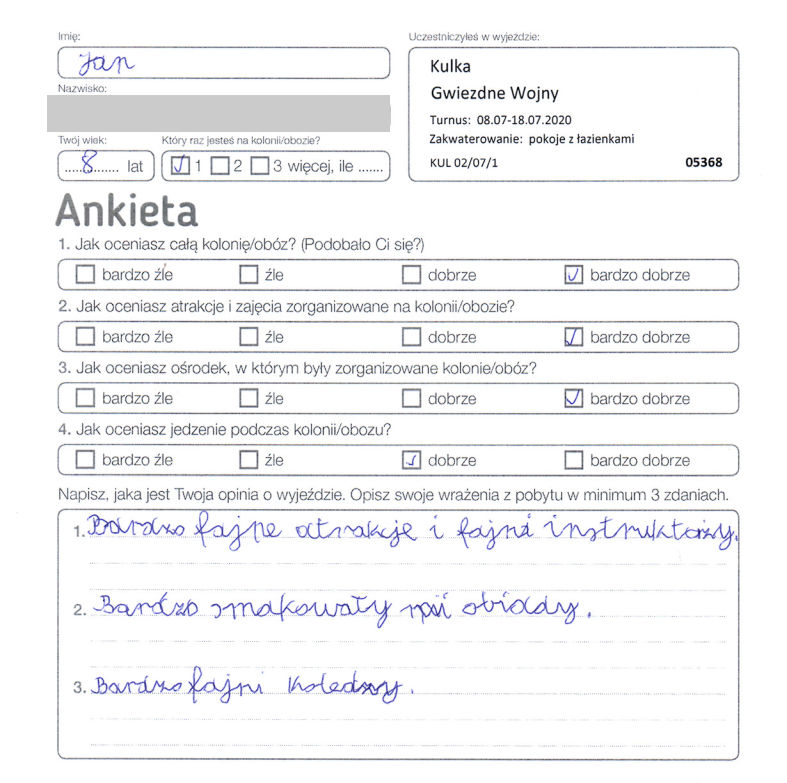 Imię:
Jan
Nazwisko:
Twój wiek:
8 lat
Który raz jesteś na kolonii/obozie?
1 2 3 więcej, ile .......
Uczestniczyłeś w wyjeździe:
Kulka
Gwiezdne Wojny
Turnus: 08.07-18.07.2020
Zakwaterowanie: pokoje z łazienkami
KUL 02/07/1 05368
Ankieta
1. Jak oceniasz całą kolonię/obóz? (Podobało Ci się?)
bardzo źle źle dobrze bardzo dobrze
2. Jak oceniasz atrakcje i zajęcia zorganizowane na kolonii/obozie?
bardzo źle źle dobrze bardzo dobrze
3. Jak oceniasz ośrodek, w którym były zorganizowane kolonie/obóz?
bardzo źle źle dobrze bardzo dobrze
4. Jak oceniasz jedzenie podczas kolonii/obozu?
bardzo źle źle dobrze bardzo dobrze
Napisz, jaka jest Twoja opinia o wyjeździe. Opisz swoje wrażenia z pobytu w minimum 3 zdaniach.
1. Bardzo fajne atrakcje i fajni instruktorzy.
2. Bardzo smakowały obiady.
3. Bardzo fajni koledzy.